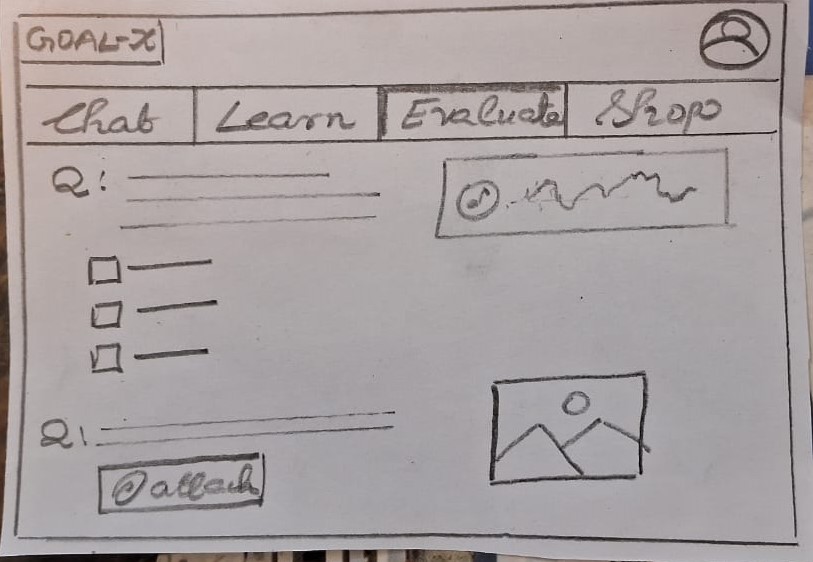 GOAL-X
Chat Learn Evaluate Shop
Q:
Q:
attach